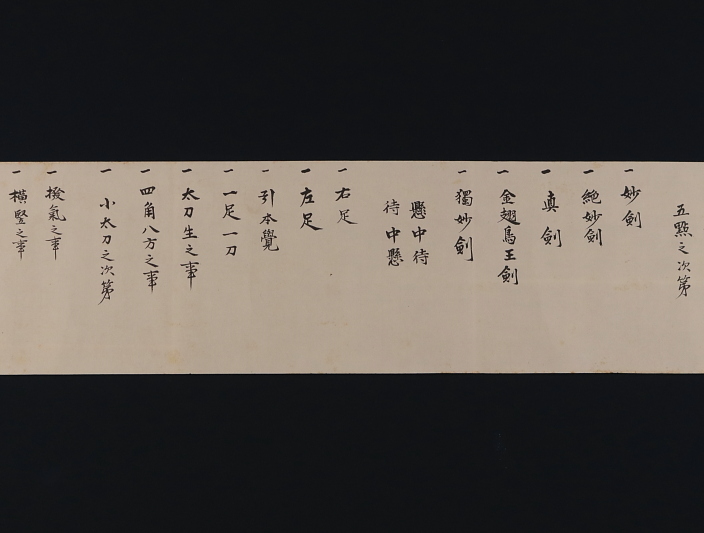 五點之次第
一妙剣
一絶妙剣
一真剣
一金翅鳥王剣
一獨妙剣
懸中待
待中懸
一右足
一左足
一引本覺
一一足一刀
一太刀生之事
一四角八方之事
一小太刀之次第
一棯氣之事
一横竪之事